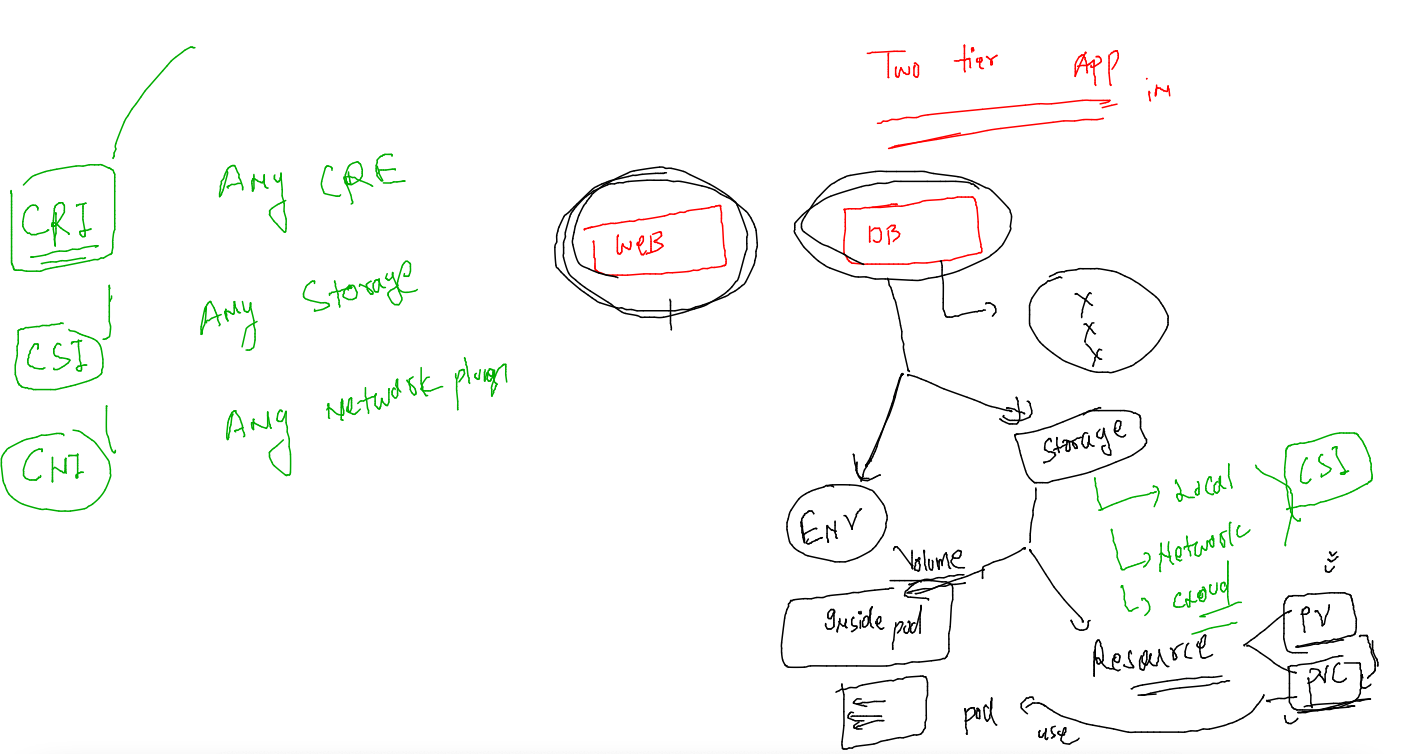 Two tier APP in
CRI
Any CRE
CSI
Any Storage
CNI
Any Network plugin
WeB
DB
x
x
x
Storage
CSI
Local
Network
Cloud
ENV
Volume
Inside pod
Resource
PV
PVC
pod
use